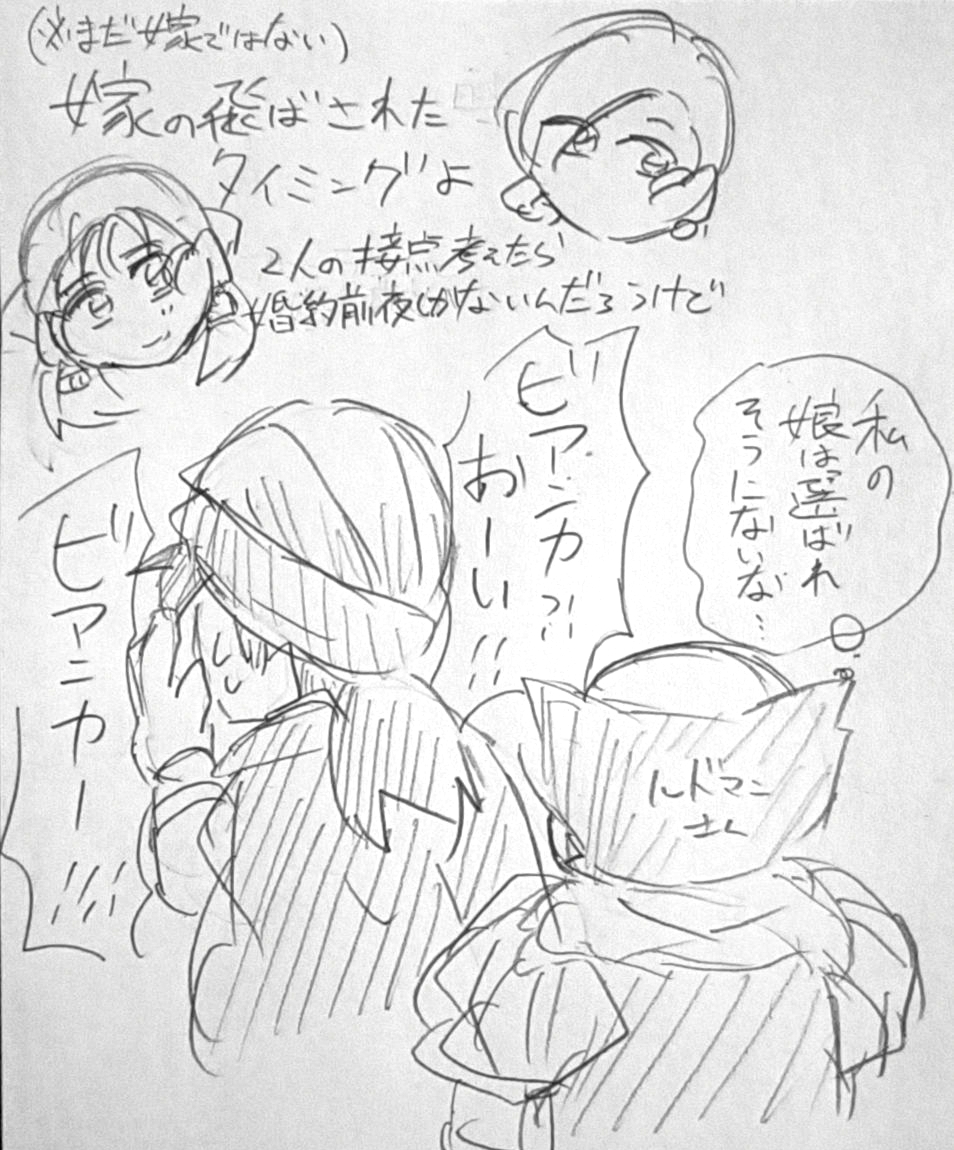 (※まだ嫁ではない)
嫁の飛ばされた
タイミングよ
2人の接点考えたら
婚約前夜しかないんだろうけど
私の
娘は選ばれ
そうにないな…
ビアンカ?!
おーい!!
ビアンカー!!!
ルドマン
さん